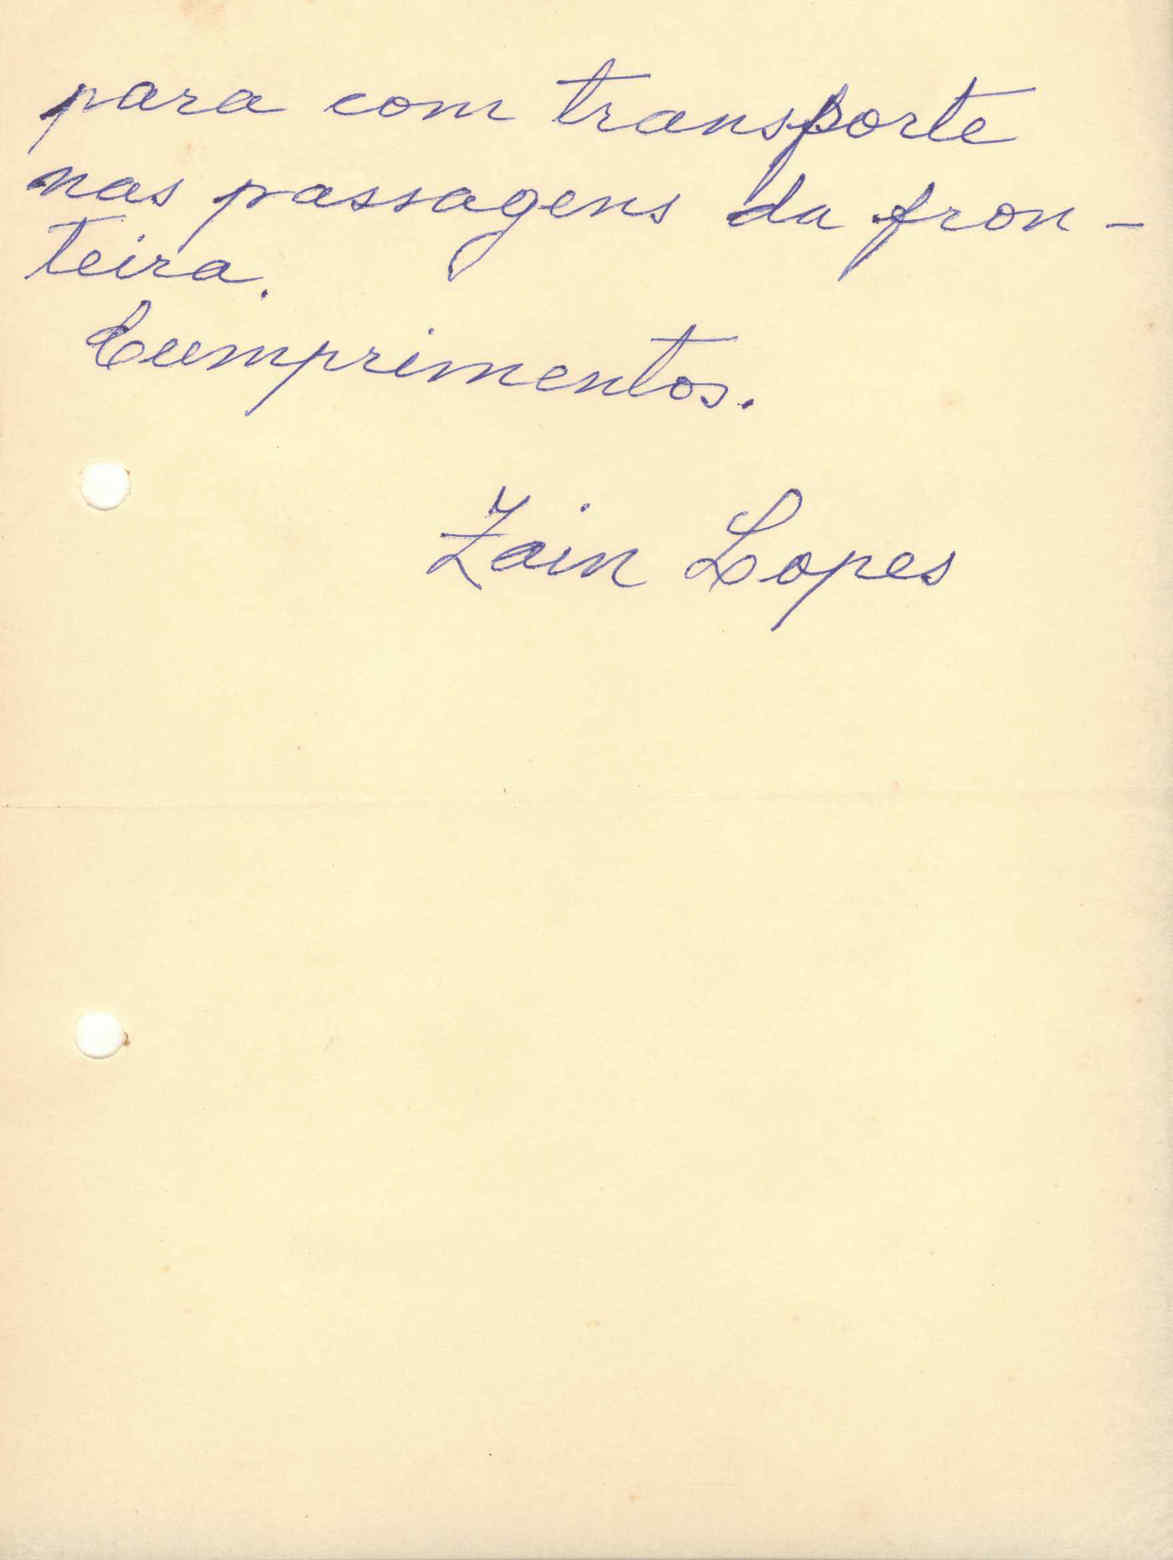 para com transporte
nas passagens da fron-
teira.
Cumprimentos.
Zain Lopes